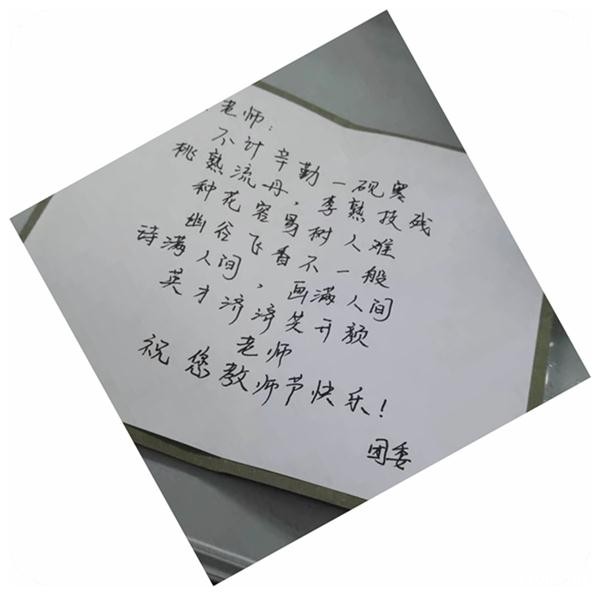 老师：
不计辛勤一砚寒
桃熟流丹，李熟技残
种花容易树人难
幽谷飞香不一般
诗满人间，画满人间
英才济济笑开颜
老师
祝您教师节快乐！
团委